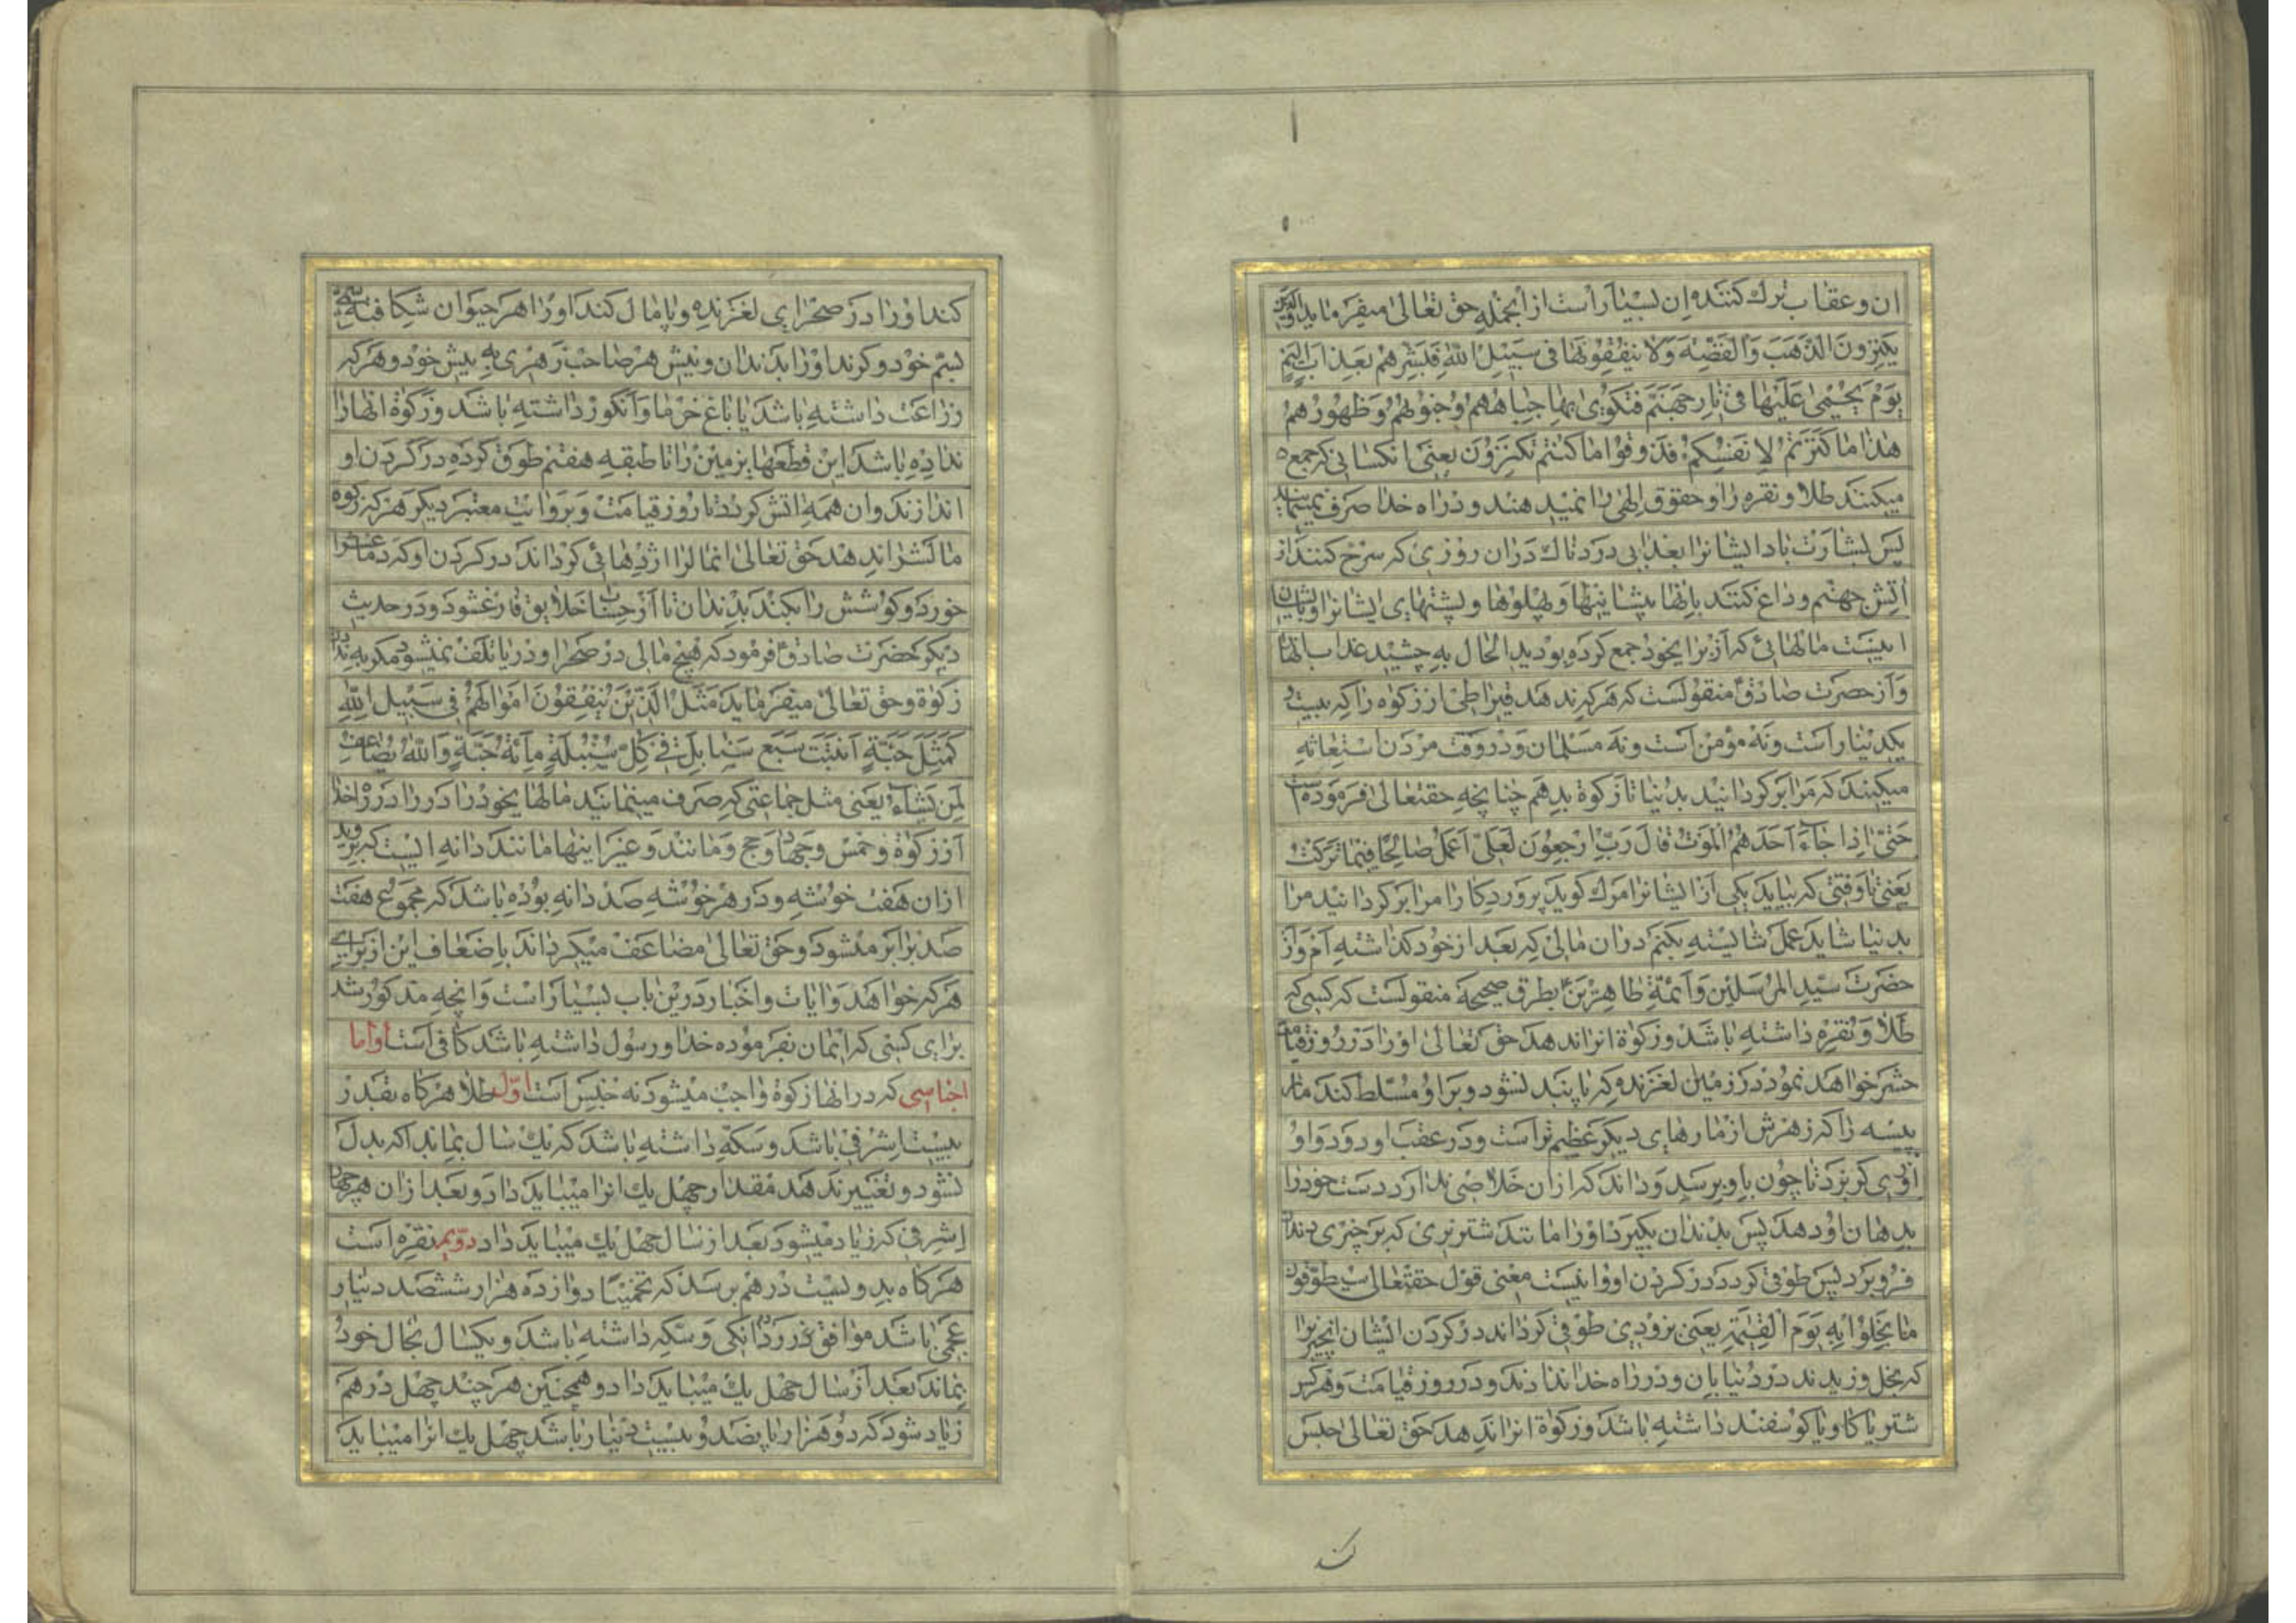 ان و عقاب ترک کننده ان بسیار است از انجمله حق تعالی میفرماید والذین
یکنزون الذهب والفضة ولا ینفقونها فی سبیل الله فبشرهم بعذاب الیم
یوم یحمی علیها فی نار جهنم فتکوی بها جباههم وجنوبهم وظهورهم
هذا ما کنزتم لانفسکم فذوقوا ما کنتم تکنزون یعنی انکسانی که جمع
میکنند طلا و نقره را و حقوق الهی را نمیدهند و در راه خدا صرف نمینمایند
پس بشارت باد ایشانرا بعذابی دردناک در آن روزی که سرخ کنند از
اتش جهنم و داغ کنند بانها پیشانیها و پهلوها و پشتهای ایشانرا و بایشان
اینست مالهائی که از برای خود جمع کرده بودید الحال به چشید عذاب انها
و از حضرت صادق منقولست که هر که ندهد قیراطی از زکوه را که بیست
یکدینار است و نه مؤمن است و نه مسلمان و در وقت مردن استغاثه
میکند که مرا بر کردانید بدنیا تا زکوة بدهم چنانچه حقتعالی فرموده است
حتی اذا جاء احدهم الموت قال رب ارجعون لعلی اعمل صالحا فیما ترکت
یعنی تا وقتی که بیاید یکی از ایشانرا مرک کوید پروردکارا مرا بر کردانید مرا
بدنیا شاید عمل شایسته بکنم در ان مالی که بعد از خود کذاشته ام و از
حضرت سید المرسلین و ائمة طاهرین بطرق صحیحه منقولست که کسی که
طلا و نقره داشته باشد و زکوة انرا ندهد حق تعالی او را در روز قیامت
حشر خواهد نمود در زمین لغزنده که پا بند نشود و بر او مسلط کند مار
پیسه را که زهرش از مارهای دیکر عظیم تر است و در عقب او رود و او
از وی کریزد تا چون باو برسد و داند که از ان خلاصی ندارد دست خود را
بدهان او دهد پس بدندان بکیرد او را مانند شتر نری که بر چیزی دندان
فرو برد پس طوقی کردد در کردن او و اینست معنی قول حقتعالی سیطوقون
ما بخلوا به یوم القیمة یعنی بزودی طوقی کرداند در کردن ایشان انچیزیرا
که بخل وزیدند در دنیا بان و در راه خدا ندادند و در روز قیامت و هر که
شتر یا کاو یا کوسفند داشته باشد و زکوة انرا ندهد حق تعالی حبس
کند
کند او را در صحرای لغزنده و پامال کند او را هر حیوان شکافته
بسم خود و کزند او را بدندان و نیش هر صاحب زهری به نیش خود و هر که
زراعت داشته باشد یا باغ خرما و انکور داشته باشد و زکوة انها را
نداده باشد این قطعهای زمین را تا طبقه هفتم طوق کرده در کردن او
اندازند و ان همه اتش کردد تا روز قیامت و بروایت معتبر دیکر هر که زکوه
مالش را ندهد حق تعالی انمال را اژدهائی کرداند در کردن او که دماغش را
خورد و کوشش را بکند بدندان تا از حساب خلایق فارغ شود و در حدیث
دیکر حضرت صادق فرمود که هیچ مالی در صحرا و دریا تلف نمیشود مکر به ندادن
زکوة و حق تعالی میفرماید مثل الذین ینفقون اموالهم فی سبیل الله
کمثل حبة انبتت سبع سنابل فی کل سنبلة مائة حبة والله یضاعف
لمن یشاء یعنی مثل جماعتی که صرف مینمایند مالهای خود را در راه خدا
از زکوة و خمس و جهاد و حج و مانند و غیر اینها مانند دانه ایست که بروید
از ان هفت خوشه و در هر خوشه صد دانه بوده باشد که مجموع هفت
صد برابر میشود و حق تعالی مضاعف میکرداند باضعاف این از برای
هر که خواهد و ایات و اخبار در این باب بسیار است و انچه مذکور شد
برای کسی که ایمان بفرموده خدا و رسول داشته باشد کافی است و اما
اجناسی که در انها زکوة واجب میشود نه جنس است اول طلا هر کاه بقدر
بیست اشرفی باشد و سکه داشته باشد که یک سال بماند اکر بدل
نشود و تغییر ندهد مقدار چهل یک انرا میباید داد و بعد از ان هر چهار
اشرفی که زیاد میشود بعد از سال چهل یک میباید داد دویم نقره است
هر کاه بدویست درهم برسد که تخمینا دوازده هزار ششصد دینار
عجمی باشد موافق و سکه داشته باشد و یکسال بحال خود
بماند بعد از سال چهل یک میباید داد و همچنین هر چند چهل درهم
زیاد شود که دو هزار پانصد و بیست دینار باشد چهل یک انرا میباید